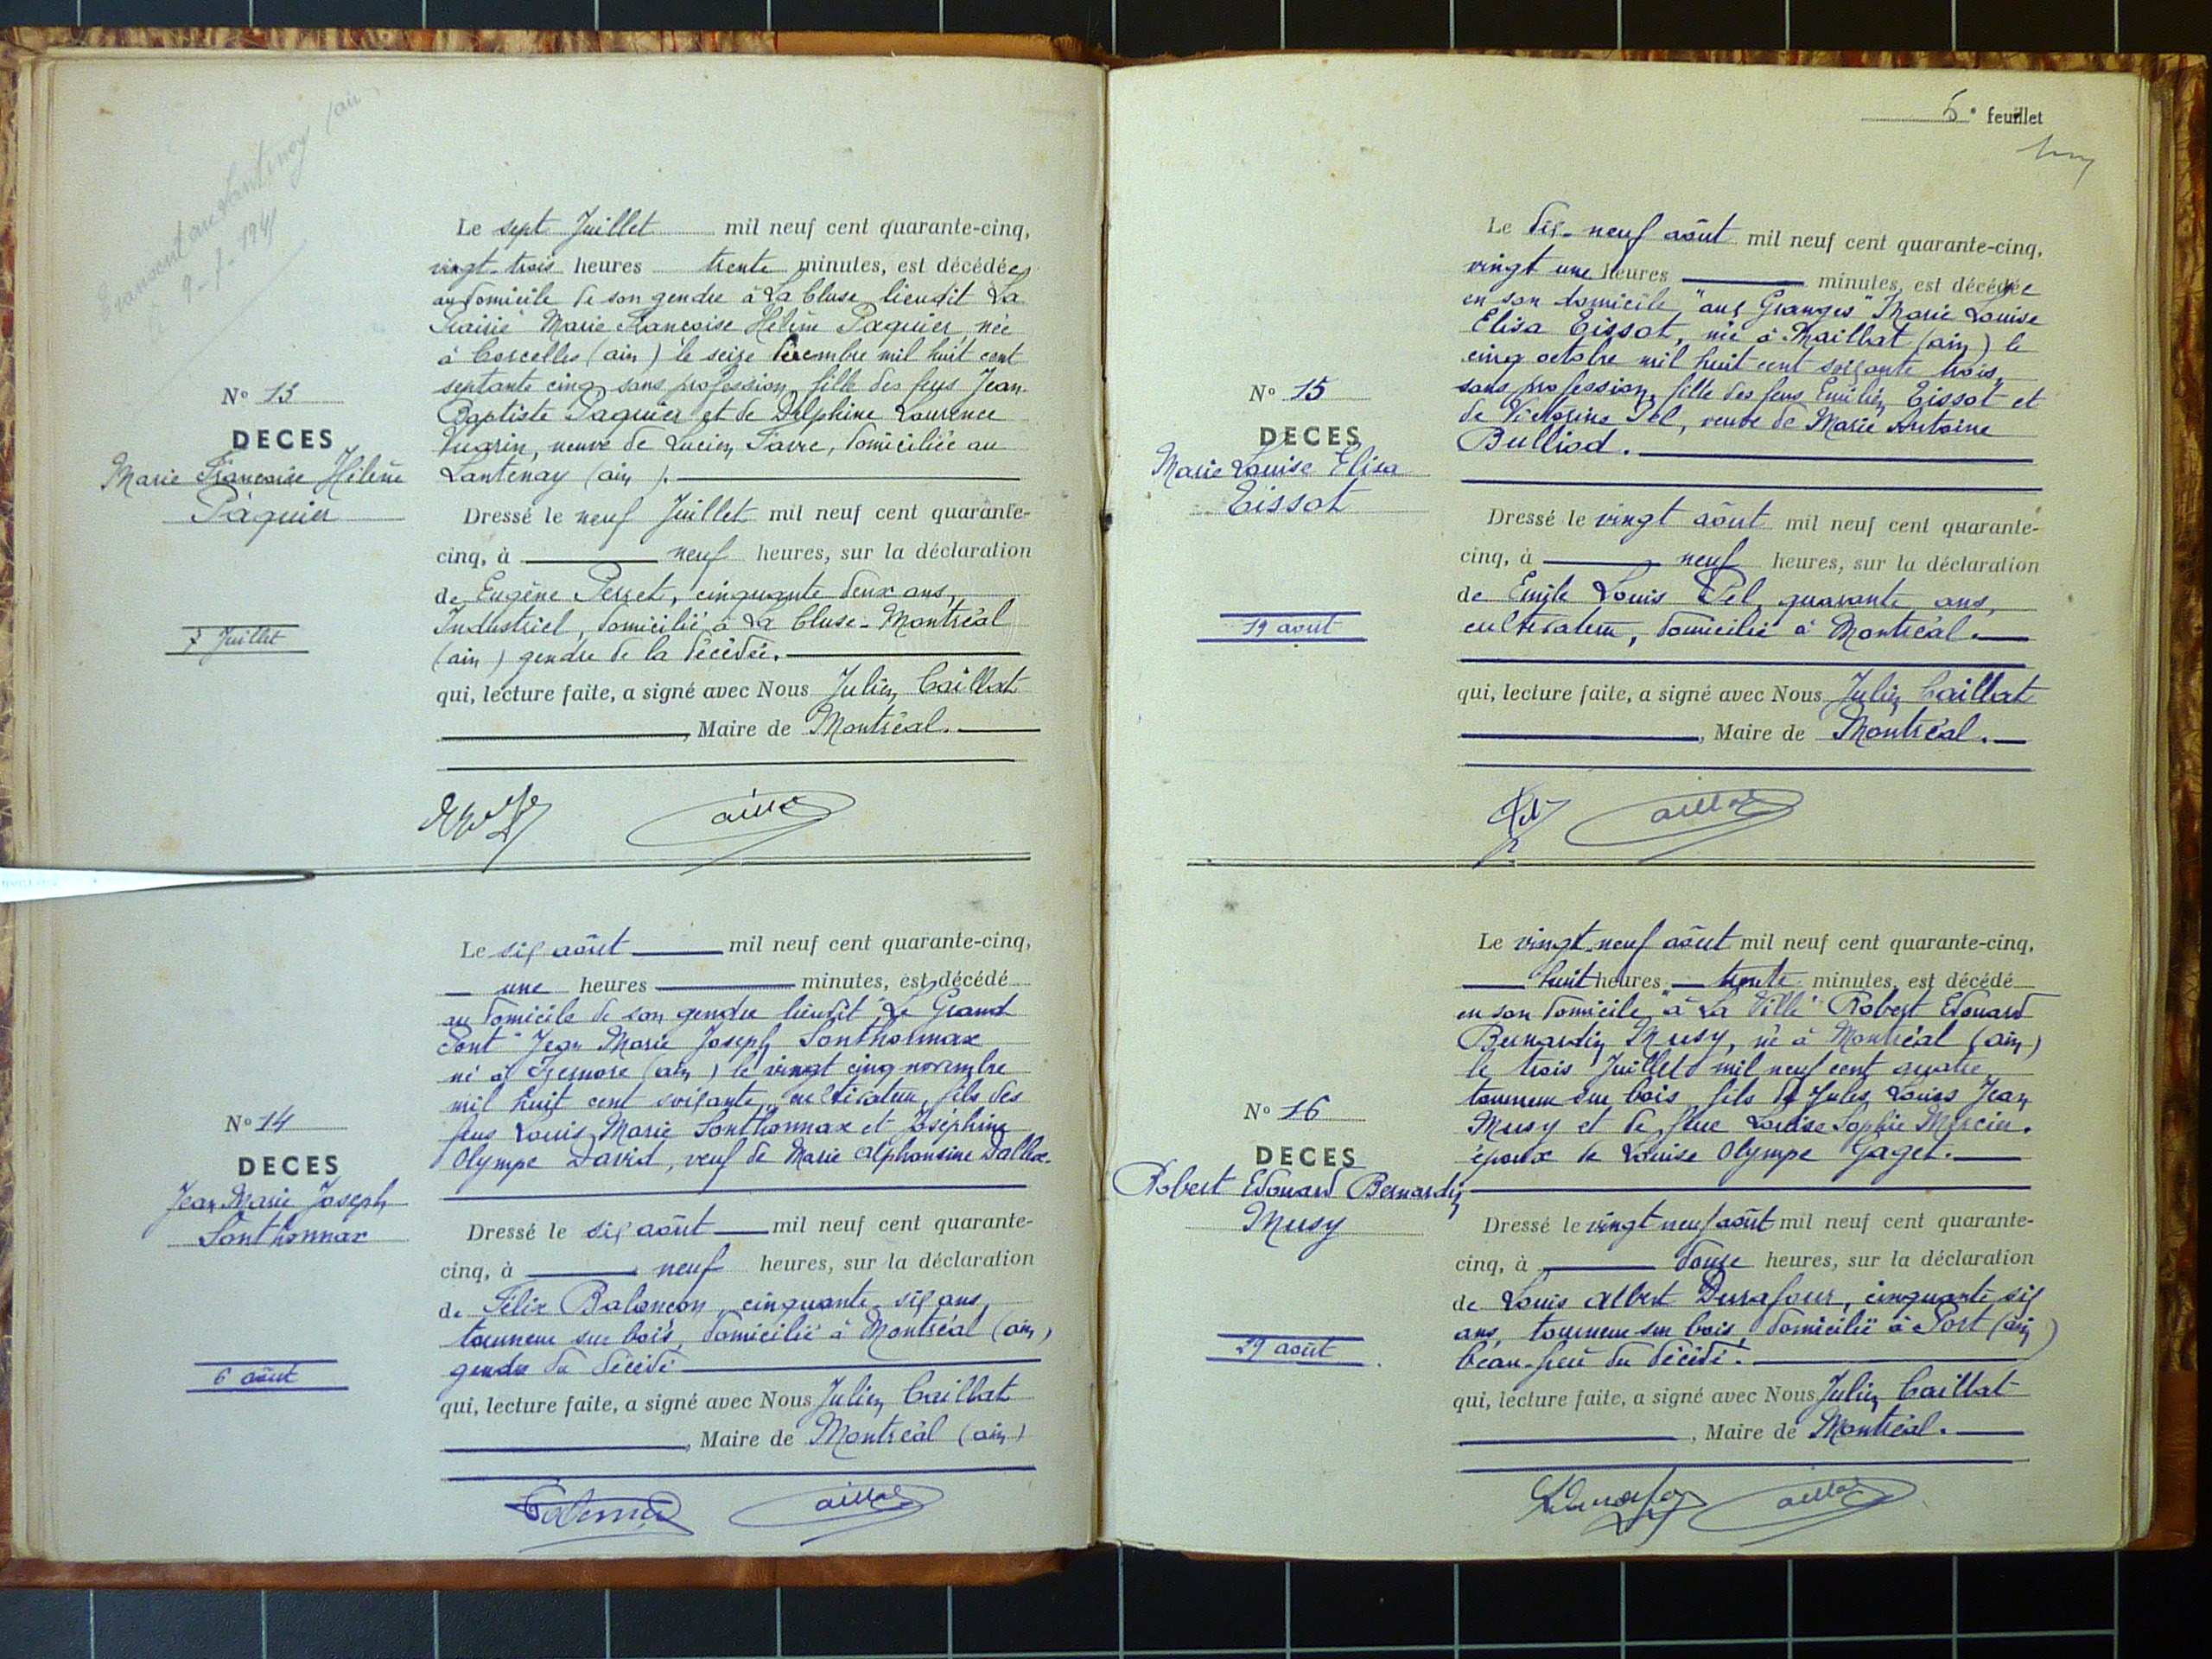 9-7-1945
Le sept Juillet mil neuf cent quarante-cinq,
vingt-trois heures trente minutes, est décédée
au domicile de son gendre à La Cluse lieudit La
Prairie Marie Françoise Hélène Paquier, née
à Corcelles (ain) le seize décembre mil huit cent
septante cinq sans profession, fille des feus Jean
Baptiste Paquier et de Delphine Laurence
veuve de Lucien Favre, domiciliée au
Lantenay (ain).
N° 13
DECES
Marie Françoise Hélène
Paquier
7 Juillet
Dressé le neuf Juillet mil neuf cent quarante-
cinq, à neuf heures, sur la déclaration
de Eugène Perret, cinquante deux ans,
Industriel, domicilié à La Cluse-Montréal
(ain) gendre de la décédée.
qui, lecture faite, a signé avec Nous Julien Caillat
, Maire de Montréal.
Le six août mil neuf cent quarante-cinq,
une heures minutes, est décédé
au domicile de son gendre lieudit "Le Grand
Pont" Jean Marie Joseph Sonthonnax
né à Izernore (ain) le vingt cinq novembre
mil huit cent soixante, cultivateur, fils des
feus Louis Marie Sonthonnax et Joséphine
Olympe David, veuf de Marie Alphonsine Dalloz.
N° 14
DECES
Jean Marie Joseph
Sonthonnax
6 août
Dressé le six août mil neuf cent quarante-
cinq, à neuf heures, sur la déclaration
de Félix Balançon, cinquante-six ans,
tourneur sur bois, domicilié à Montréal (ain)
gendre du décédé
qui, lecture faite, a signé avec Nous Julien Caillat
, Maire de Montréal (ain)
6e feuillet
Le dix-neuf août mil neuf cent quarante-cinq,
vingt une heures minutes, est décédée
en son domicile, "aux Granges" Marie Louise
Elisa Tissot, née à Maillat (ain) le
cinq octobre mil huit cent soixante trois,
sans profession, fille des feus Emilien Tissot et
de Victorine Pel, veuve de Marie Antoine
Bulliod.
N° 15
DECES
Marie Louise Elisa
Tissot
19 août
Dressé le vingt août mil neuf cent quarante-
cinq, à neuf heures, sur la déclaration
de Emile Louis Pel, quarante ans,
cultivateur, domicilié à Montréal.
qui, lecture faite, a signé avec Nous Julien Caillat
, Maire de Montréal.
Le vingt-neuf août mil neuf cent quarante-cinq,
huit heures trente minutes, est décédé
en son domicile, "à La Ville" Robert Edouard
Bernardin Musy, né à Montréal (ain)
le trois Juillet mil neuf cent quatre
tourneur sur bois, fils de Jules Louis Jean
Musy et de feue Louise Sophie Mercier.
époux de Louise Olympe Gaget.
N° 16
DECES
Robert Edouard Bernardin
Musy
29 août
Dressé le vingt neuf août mil neuf cent quarante-
cinq, à douze heures, sur la déclaration
de Louis Albert Durafour, cinquante six
ans, tourneur sur bois, domicilié à Port (ain)
beau-frère du décédé.
qui, lecture faite, a signé avec Nous Julien Caillat
, Maire de Montréal.